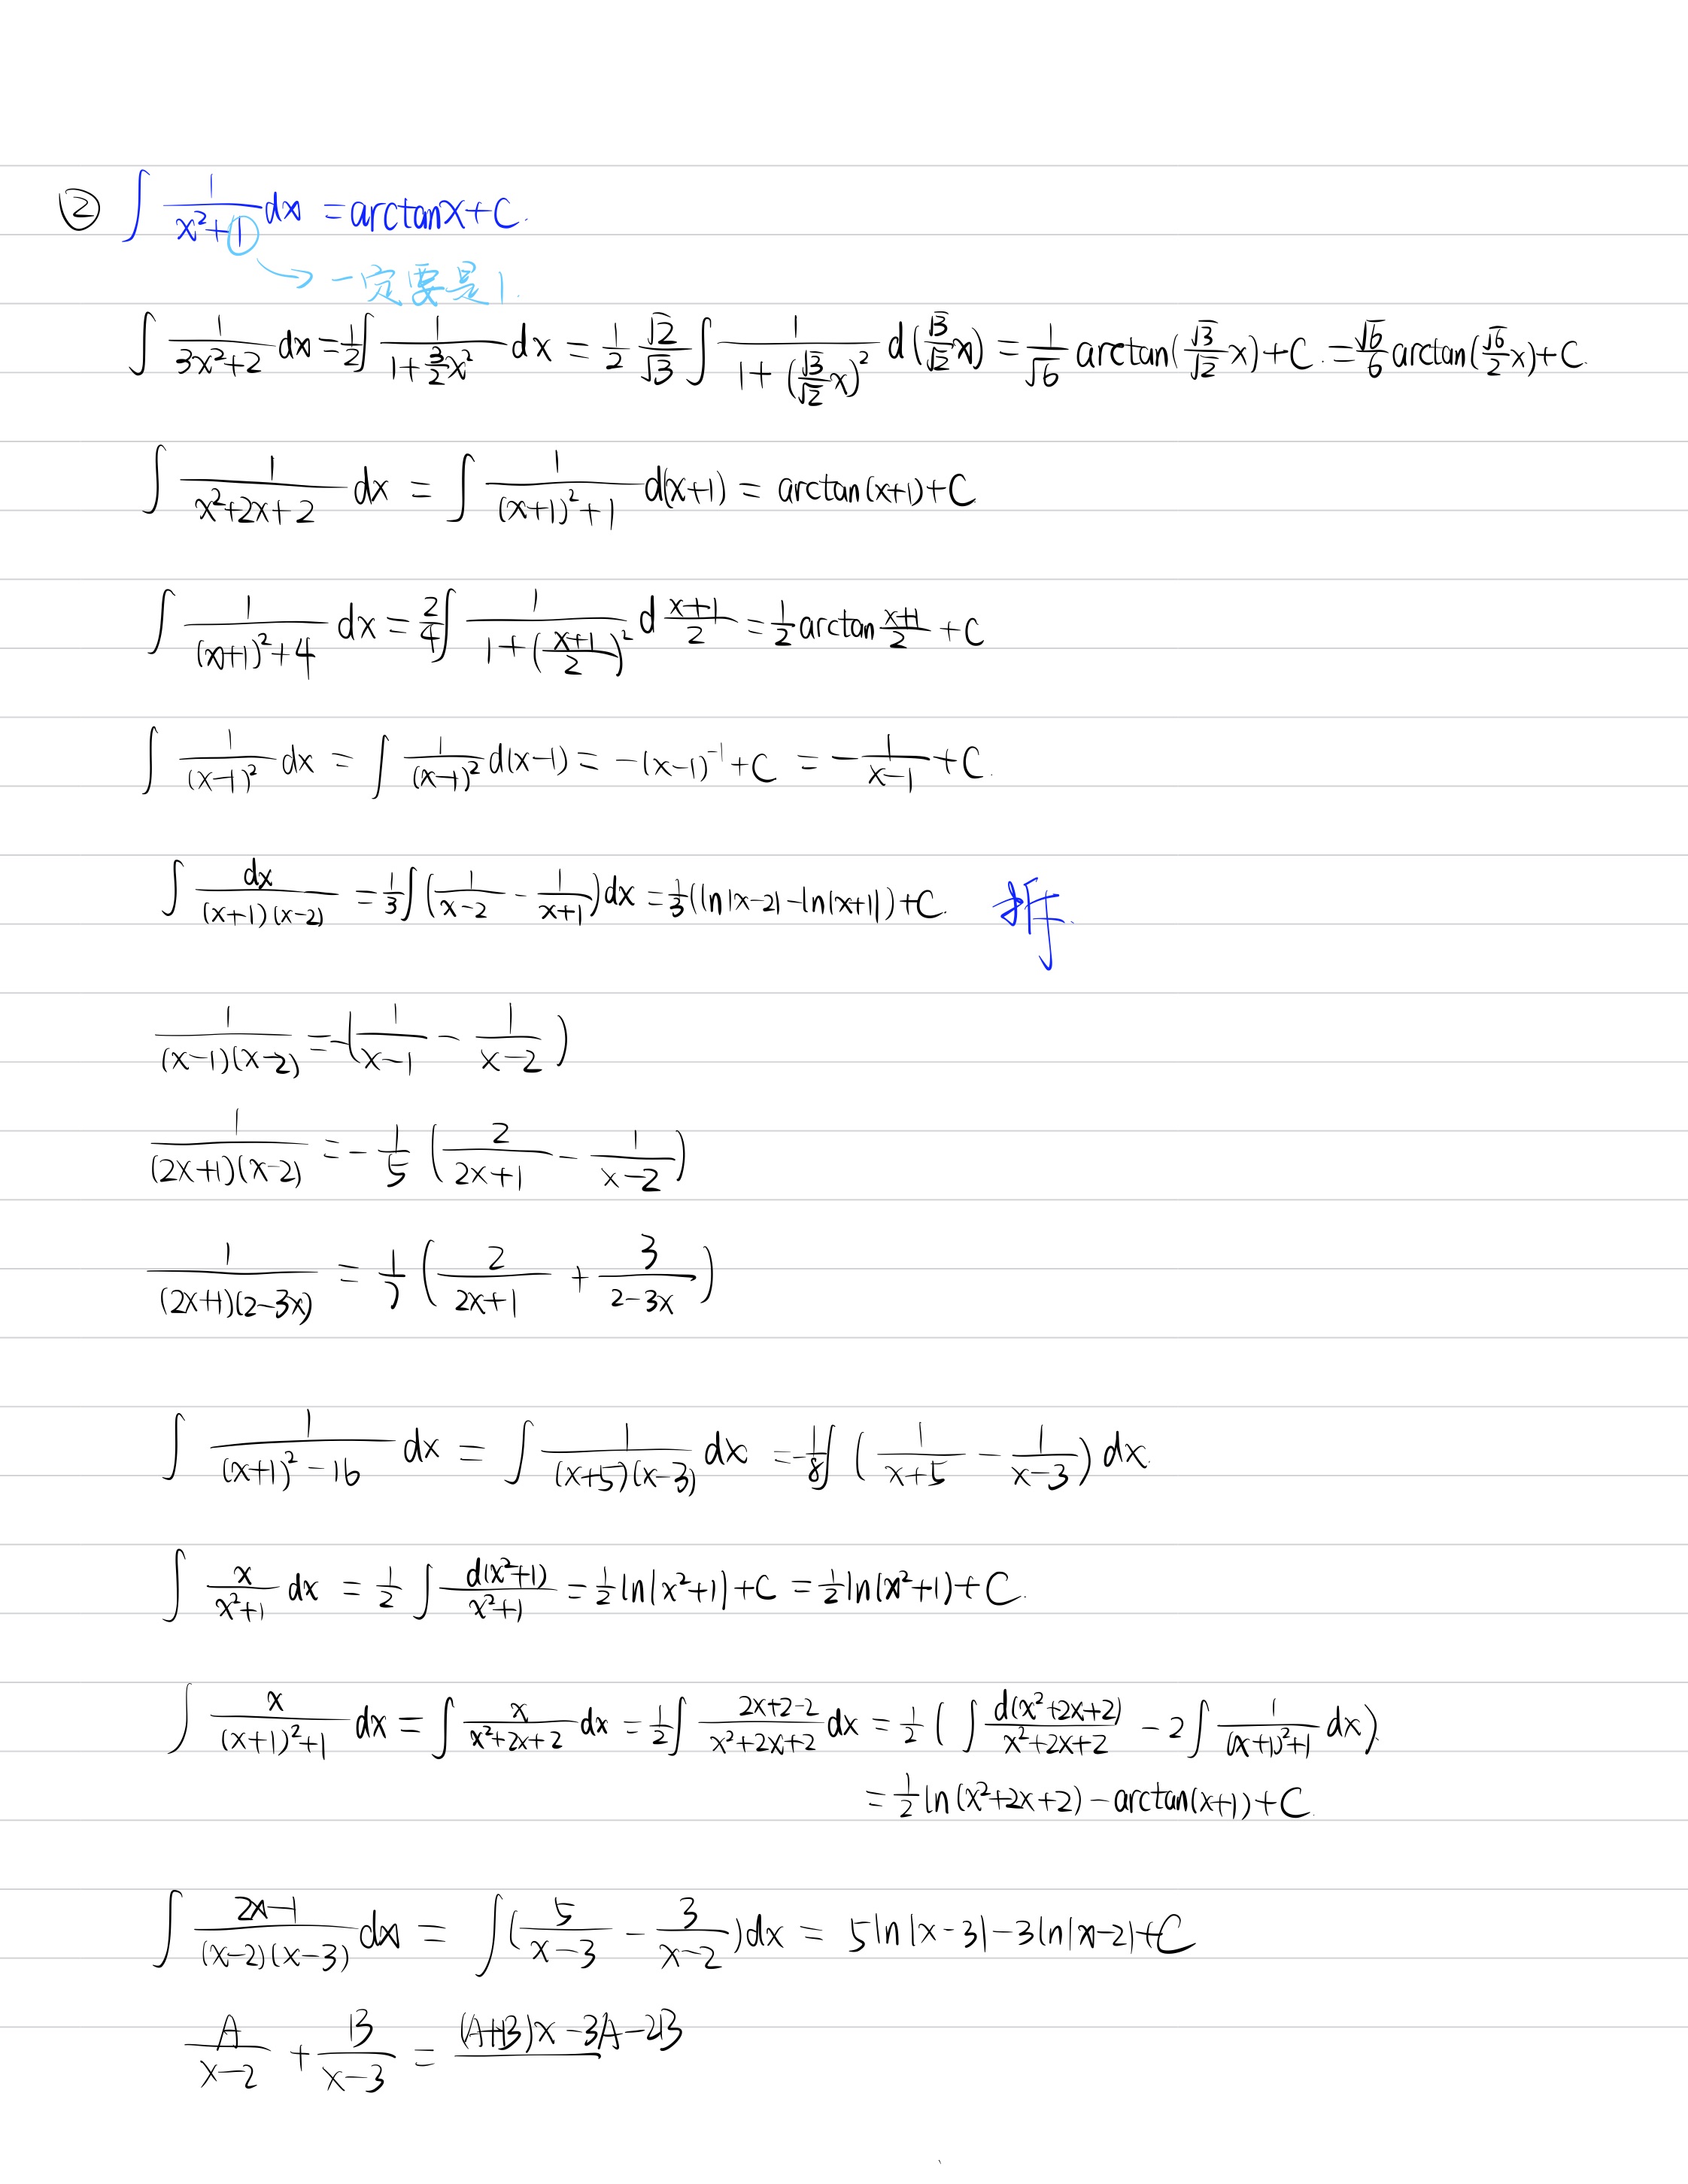 ② ∫ 1/(x²+1) dx = arctanx+C.
→ 一定要是1.
∫ 1/(3x²+2) dx = 1/2 ∫ 1/(1+(3/2)x²) dx = 1/2 √2/√3 ∫ 1/(1+(√3/√2 x)²) d(√3/√2 x) = 1/√6 arctan(√3/√2 x)+C. = √6/6 arctan(√6/2 x)+C.
∫ 1/(x²+2x+2) dx = ∫ 1/((x+1)²+1) d(x+1) = arctan(x+1)+C
∫ 1/((x+1)²+4) dx = 2/4 ∫ 1/(1+((x+1)/2)²) d (x+1)/2 = 1/2 arctan (x+1)/2 +C
∫ 1/(x-1)² dx = ∫ 1/(x-1)² d(x-1) = -(x-1)⁻¹+C = -1/(x-1)+C.
∫ dx/((x+1)(x-2)) = 1/3 ∫ (1/(x-2) - 1/(x+1))dx = 1/3(ln|x-2|-ln|x+1|)+C. 拆.
1/((x-1)(x-2)) = -(1/(x-1) - 1/(x-2))
1/((2x+1)(x-2)) = -1/5 (2/(2x+1) - 1/(x-2))
1/((2x+1)(2-3x)) = 1/7 (2/(2x+1) + 3/(2-3x))
∫ 1/((x+1)²-16) dx = ∫ 1/((x+5)(x-3)) dx = -1/8 ∫ (1/(x+5) - 1/(x-3)) dx.
∫ x/(x²+1) dx = 1/2 ∫ d(x²+1)/(x²+1) = 1/2 ln|x²+1|+C = 1/2 ln(x²+1)+C.
∫ x/((x+1)²+1) dx = ∫ x/(x²+2x+2) dx = 1/2 ∫ (2x+2-2)/(x²+2x+2) dx = 1/2 ( ∫ d(x²+2x+2)/(x²+2x+2) - 2∫ 1/((x+1)²+1) dx).
= 1/2 ln(x²+2x+2)-arctan(x+1)+C.
∫ (2x-1)/((x-2)(x-3)) dx = ∫(5/(x-3) - 3/(x-2))dx = 5ln|x-3|-3ln|x-2|+C
A/(x-2) + B/(x-3) = (A+B)x-3A-2B